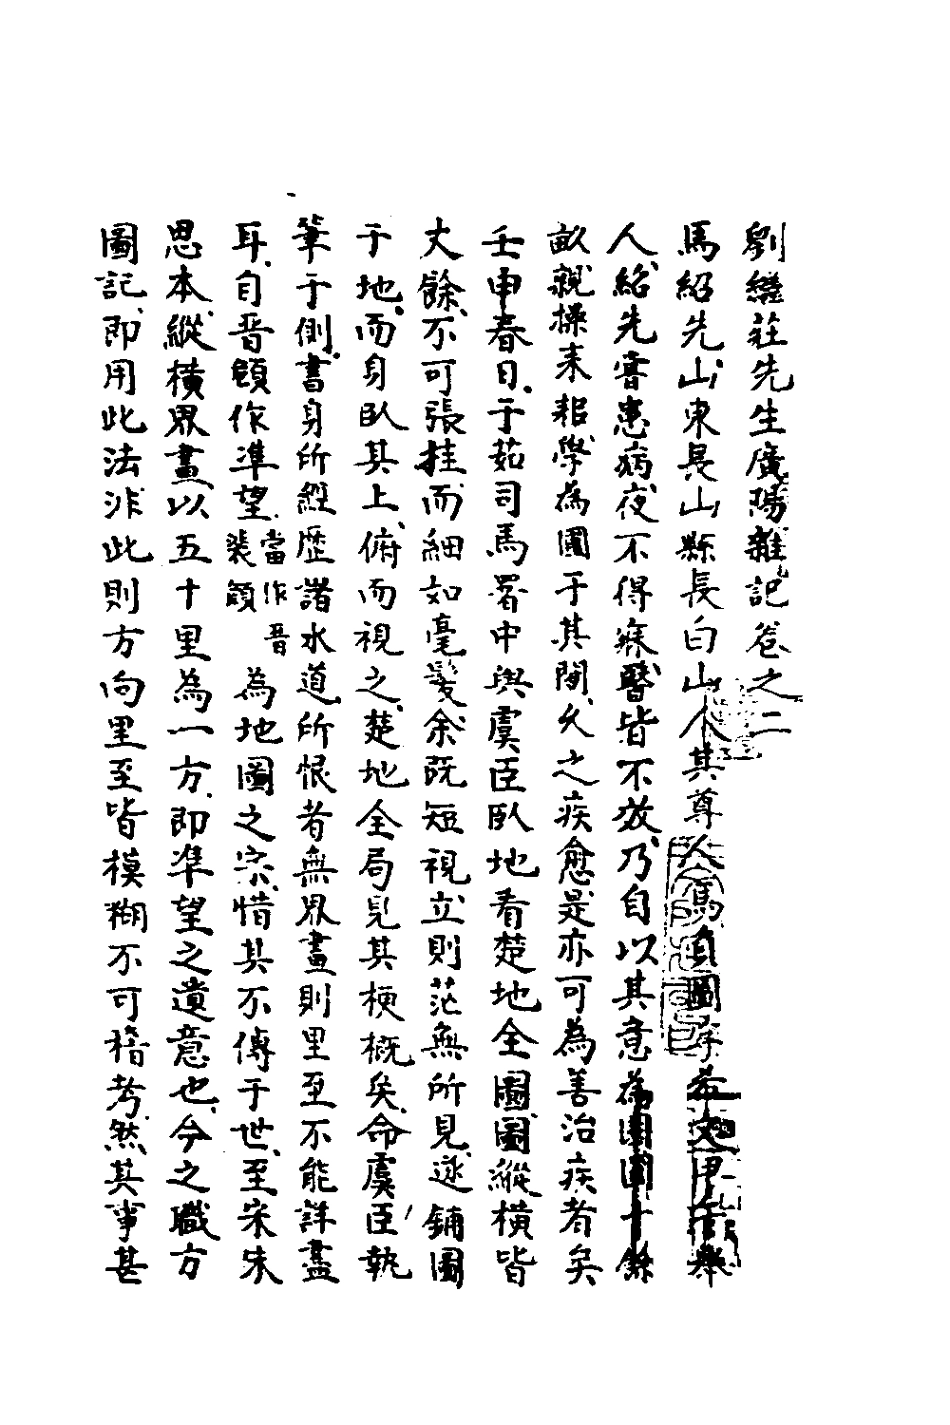 劉繼莊先生廣陽雜記卷之二
馬紹先山東長山縣長白山人其尊人馬負圖字希文甲子舉
人紹先嘗患病夜不得寐醫皆不效乃自以其意為園圃十餘
畝親操耒耜學為圃于其間久之疾愈是亦可為善治疾者矣
壬申春日于茹司馬署中與虞臣臥地看楚地全圖圖縱橫皆
丈餘不可張挂而細如毫髮余既短視立則茫無所見遂鋪圖
于地而身臥其上俯而視之楚地全局見其梗概矣命虞臣執
筆于側書身所經歷諸水道所恨者無界畫則里至不能詳盡
耳自晋顧作準望當作晋裴頠為地圖之宗惜其不傳于世至宋朱
思本縱橫界畫以五十里為一方即準望之遺意也今之職方
圖記即用此法非此則方向里至皆模糊不可稽考然其事甚